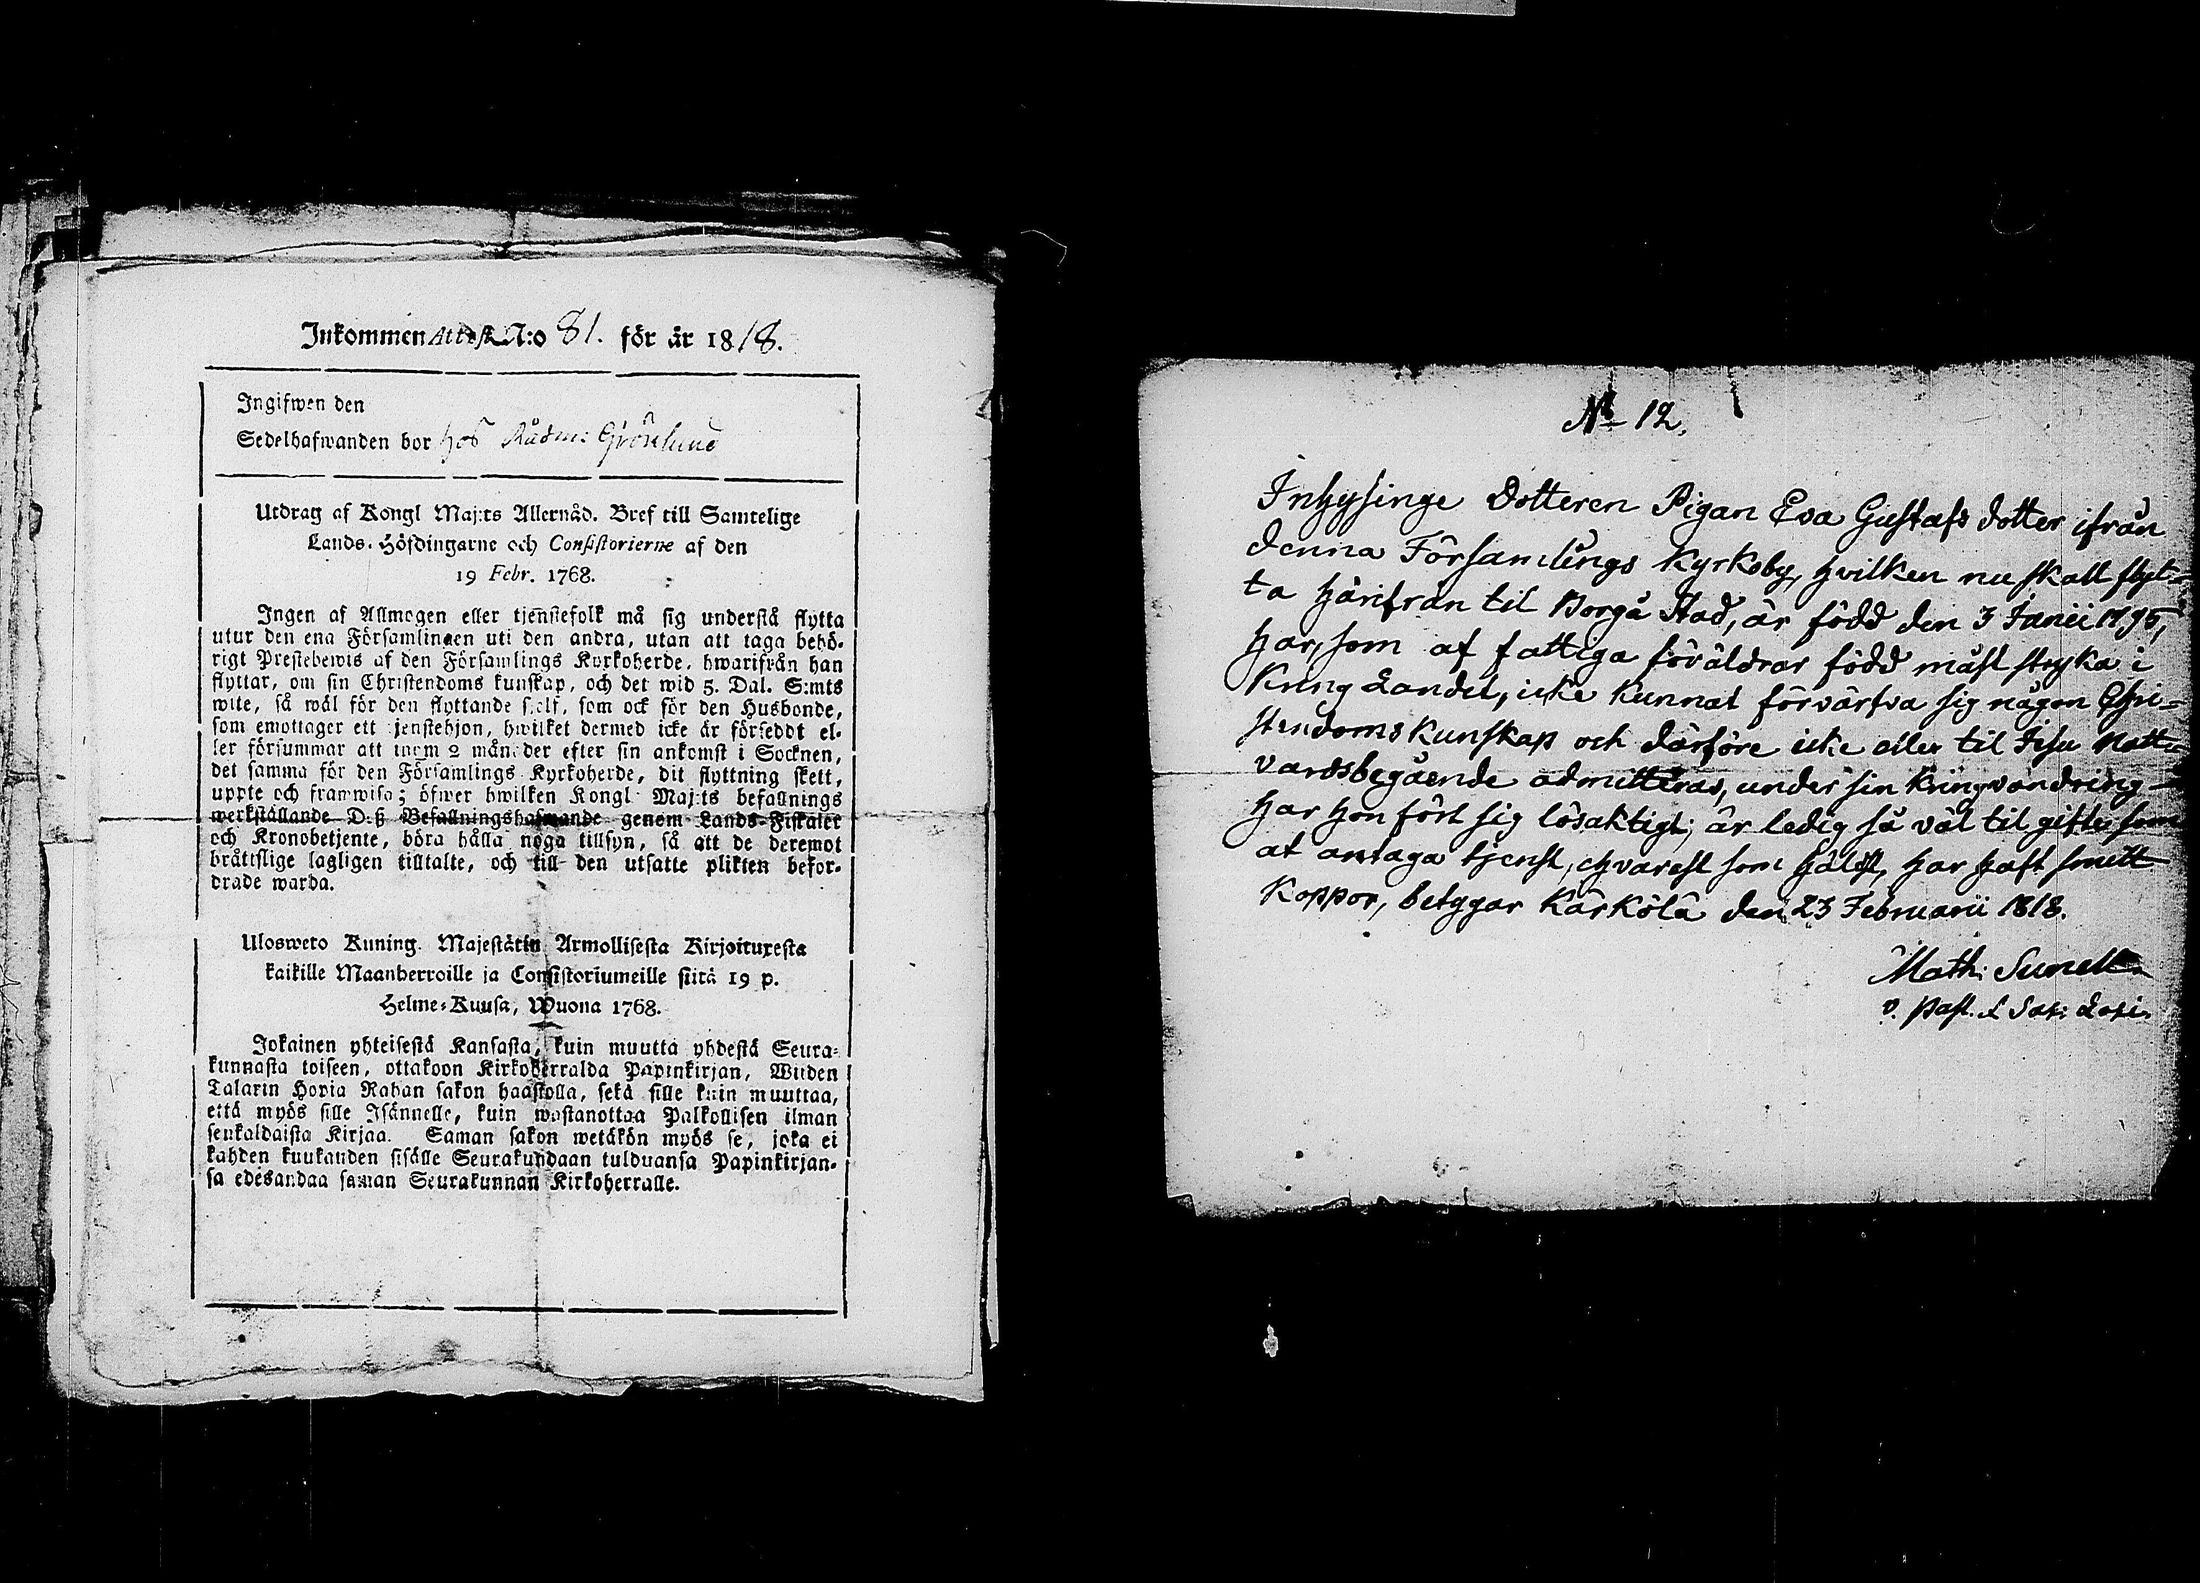 Inkommen Attest N:o 81. för år 1818.
Ingifwen den
Sedelhafwanden bor hos Rådm: Grönlund
Utdrag af Kongl Maj:ts Allernåd. Bref till Samtelige
Lands-Höfdingarne och Consistorierne af den
19 Febr. 1768.
Ingen af Allmogen eller tjenstefolk må sig understå flytta
utur den ena Församlingen uti den andra, utan att taga behö-
rigt Prestebewis af den Församlings Kyrkoherde, hwarifrån han
flyttar, om sin Christendoms kunskap, och det wid 5. Dal. S:mts
wite, så wäl för den flyttande sjelf, som ock för den Husbonde,
som emottager ett tjenstehjon, hwilket dermed icke är försedt el-
ler försummar att inom 2 månader efter sin ankomst i Socknen,
det samma för den Församlings Kyrkoherde, dit flyttning skett,
uppte och framwisa; öfwer hwilken Kongl Maj:ts befallnings
werkställande D:ß Befallningshafwande genom Lands-Fiskaler
och Kronobetjente, böra hålla noga tillsyn, så att de deremot
bråttslige lagligen tilltalte, och till den utsatte plikten befor-
drade warda.
Ulosweto Kuning. Majestätin Armollisesta Kirjoituxesta
kaikille Maanherroille ja Consistoriumeille siitä 19 p.
Helme-Kuusa, Wuona 1768.
Jokainen yhteisestä Kansasta, kuin muutta yhdestä Seura-
kunnasta toiseen, ottakoon Kirkoherralda Papinkirjan, Wiiden
Talarin Hopia Rahan sakon haastolla, sekä sille kuin muuttaa,
että myös sille Isännelle, kuin wastanottaa Palkollisen ilman
senkaldaista Kirjaa. Saman sakon wetäkön myös se, joka ei
kahden kuukauden sisälle Seurakundaan tulduansa Papinkirjan-
sa edesandaa saman Seurakunnan Kirkoherralle.
No 12.
Inhysinge Dotteren Pigan Eva Gustafs dotter ifrån
denna Församlings Kyrkoby, hvilken nu skall flyt-
ta härifrån til Borgå Stad, är född den 3 Junii 1795,
har, som af fattiga föräldrar född måst stryka i
Kring Landet, icke kunnat förvärfva sig någon Chri-
stendoms kunskap och därföre icke eller til Jesu Natt-
vardsbegående admitteras, under sin Kringvandring
har hon fört sig lösaktigt; är ledig så väl til gifte som
at antaga tjenst, ehvarest som hälst, har haft smitt
Koppor, betygar Kärkölä den 23 Februarii 1818.
Math: Sunell
v. Past. &